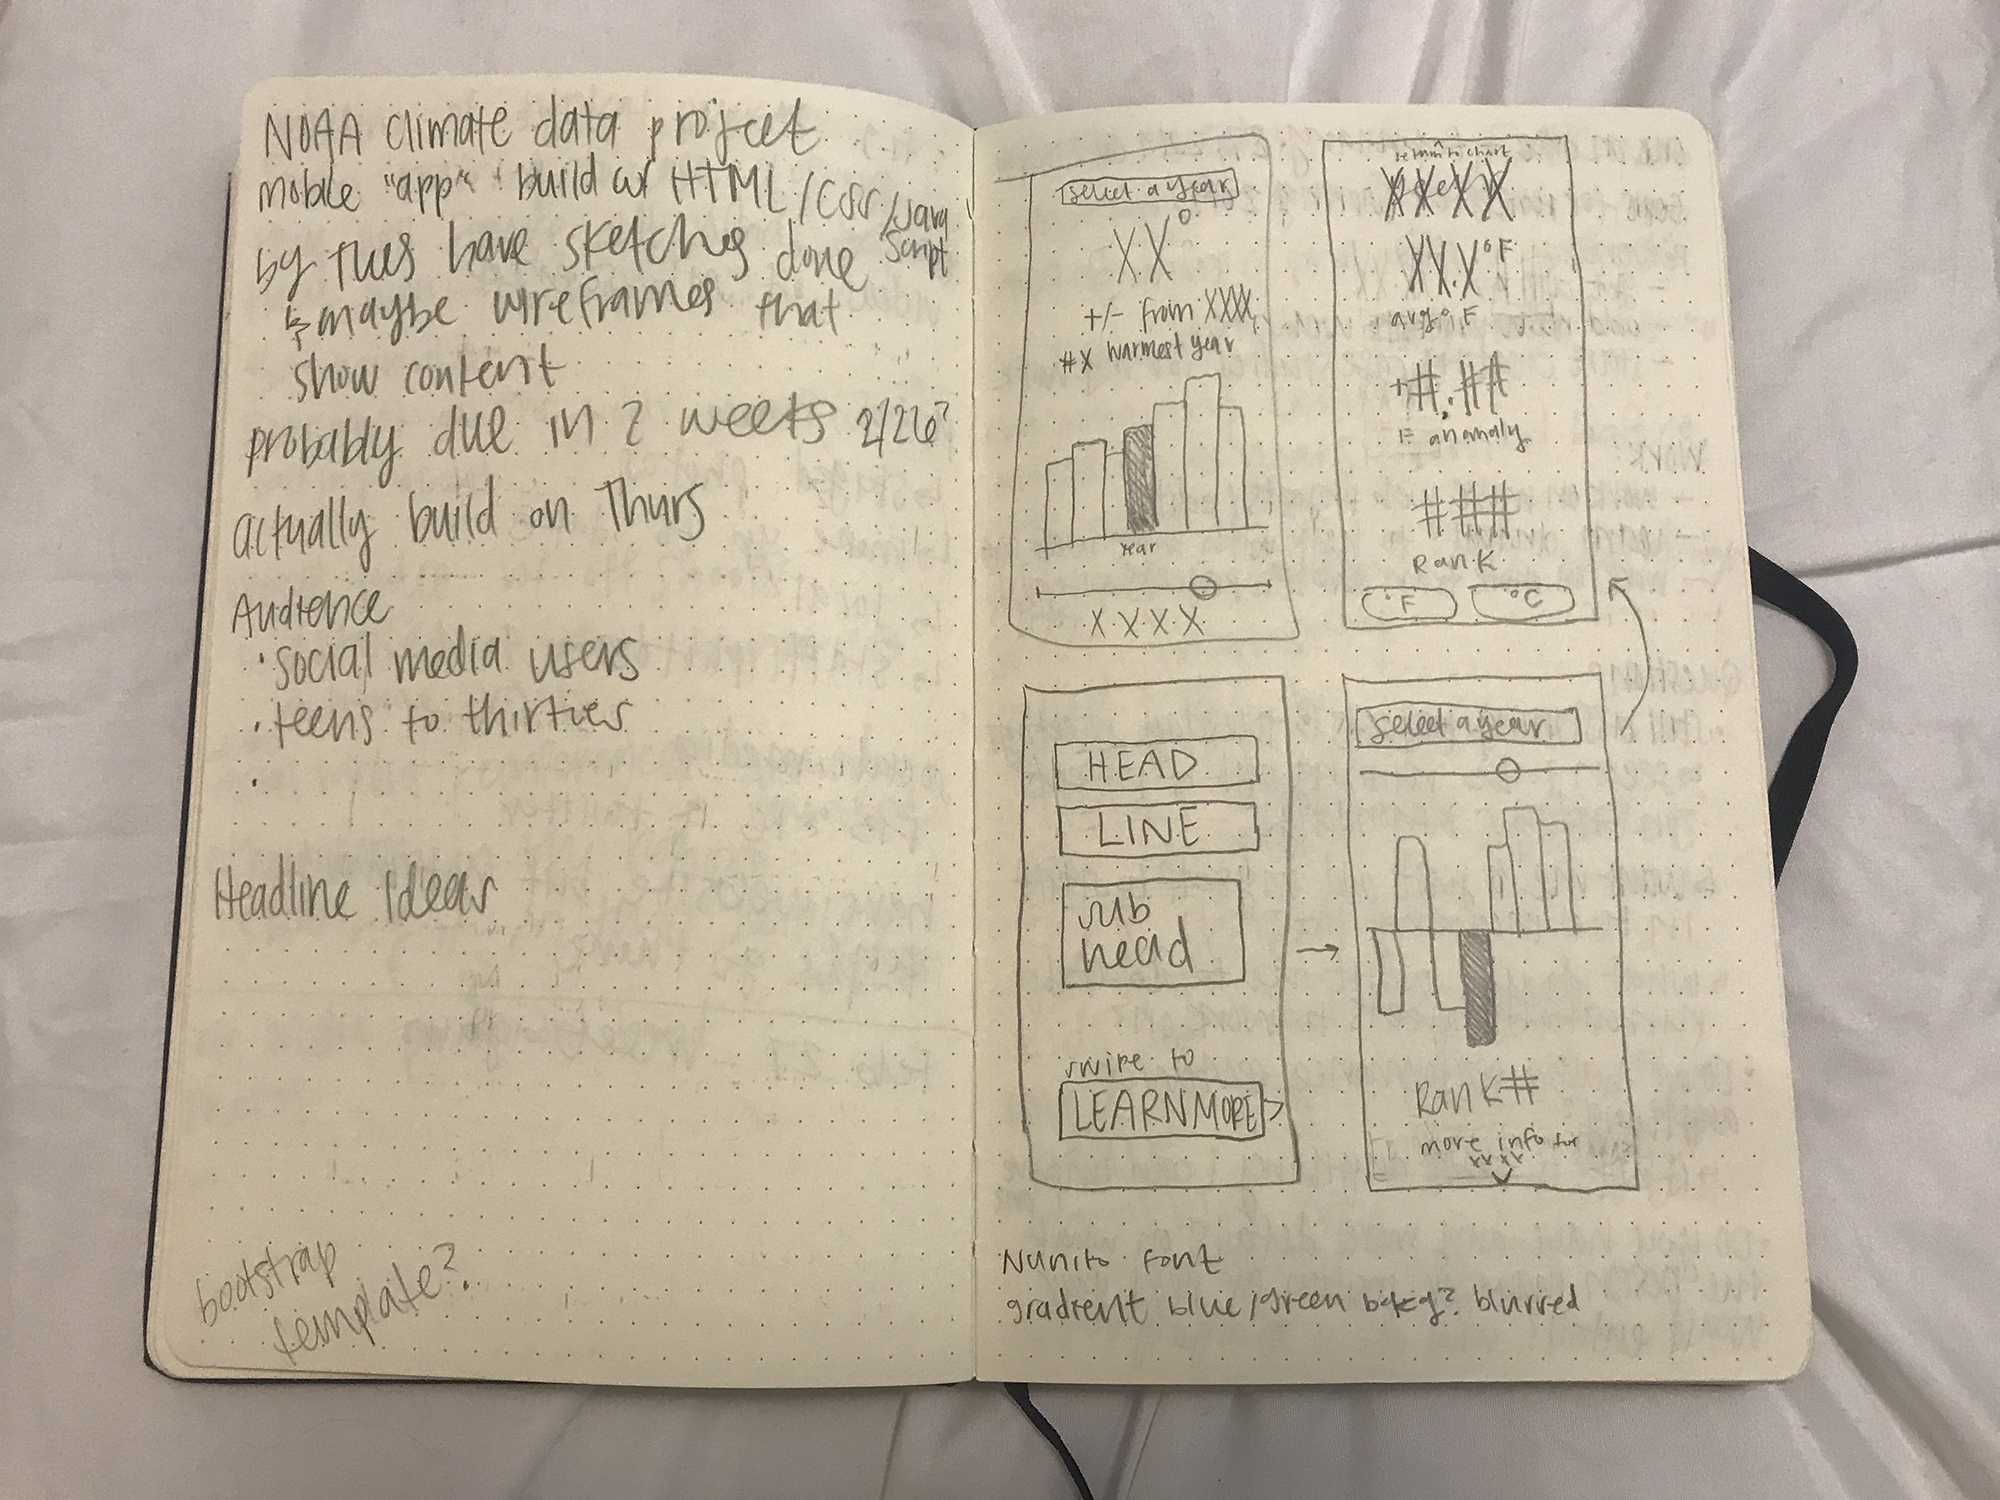 NOAA climate data project
mobile "app" build w/ HTML/CSS/Java
Script
by Tues have sketches done
↳ maybe wireframes that
show content
probably due in 2 weeks 2/26?
actually build on Thurs
Audience
· social media users
· teens to thirties
·
Headline Ideas
bootstrap
template?
select a year
XX°
+/- from XXXX
#X warmest year
year
XXXX
return to chart
XXXX
XX.X°F
avg °F
+#.##
F anomaly
###
Rank
°F °C
HEAD
LINE
sub
head
swipe to
LEARN MORE >
select a year
Rank #
more info for
XXXX
Nunito font
gradient blue/green bckg? blurred